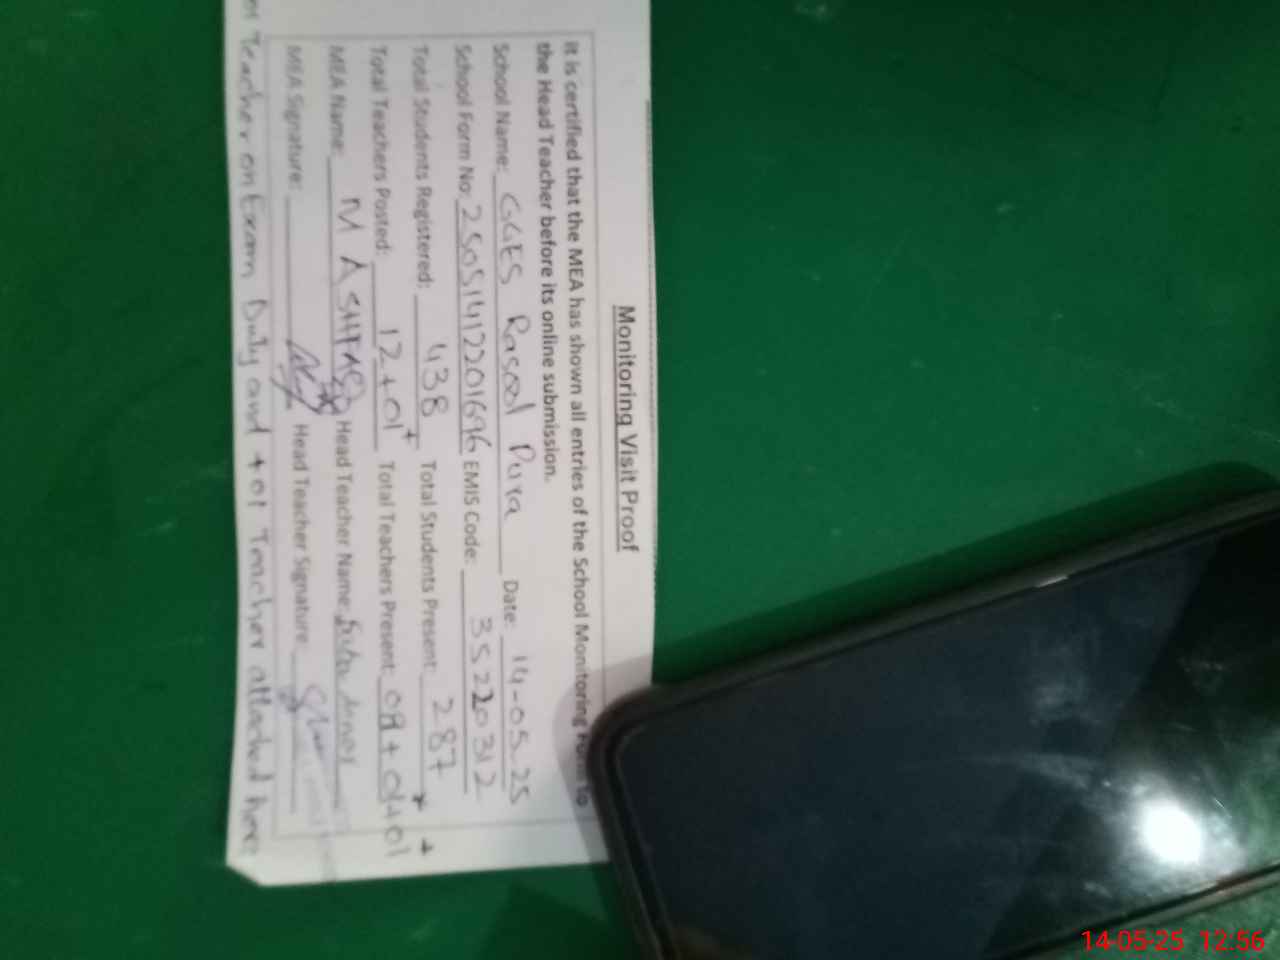 Monitoring Visit Proof
It is certified that the MEA has shown all entries of the School Monitoring Form to
the Head Teacher before its online submission.
School Name: GGES Rasool Pura Date: 14-05-25
School Form No: 25051412201696 EMIS Code: 35220312
Total Students Registered: 438 Total Students Present: 287
Total Teachers Posted: 12+01+ Total Teachers Present:
MEA Name: M ASHFAQ Head Teacher Name:
MEA Signature: Head Teacher Signature
01 Teacher on Exam Duty and +01 Teacher attached here
14-05-25 12:56